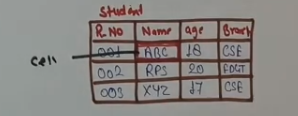 Student
R.NO Name age Branch
001 ABC 18 CSE
Cell
002 RPS 20
003 XYZ 17 CSE